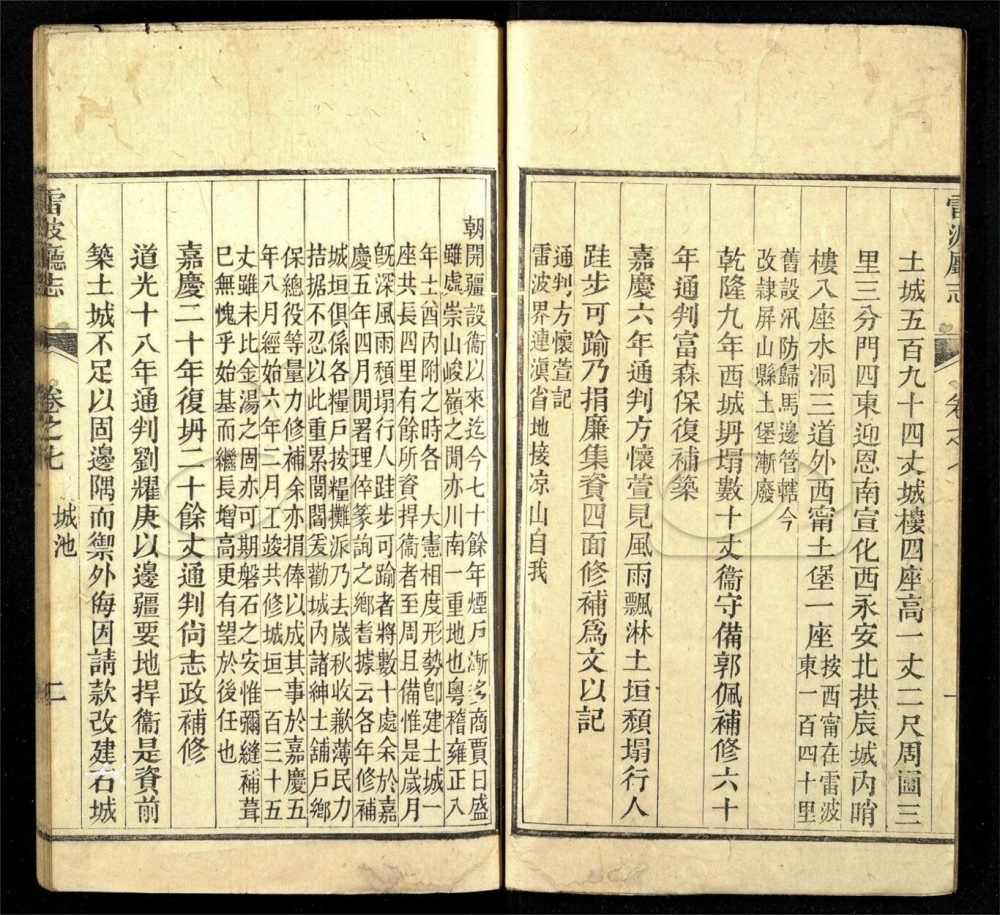 雷波廳志
卷之七
一
土城五百九十四丈城樓四座高一丈二尺周圍三
里三分門四東迎恩南宣化西永安北拱辰城內哨
樓八座水洞三道外西甯土堡一座按西甯在雷波
東一百四十里
舊設汛防歸馬邊管轄今
改隸屏山縣土堡漸廢
乾隆九年西城坍塌數十丈衞守備郭佩補修六十
年通判富森保復補築
嘉慶六年通判方懷萱見風雨飄淋土垣頽塌行人
跬步可踰乃捐廉集資四面修補爲文以記
通判方懷萱記
雷波界連滇省地接凉山自我
朝開疆設衞以來迄今七十餘年煙戶漸多商賈日盛
雖處崇山峻嶺之閒亦川南一重地也粤稽雍正八
年十二酋內附之時各 大憲相度形勢卽建土城一
座共長四里有餘所資捍衞者至周且備惟是歲月
旣深風雨頽塌行人跬步可踰者將數十處余於嘉
慶五年四月閒署理倅篆詢之鄉耆據云各年修補
城垣俱係各糧戶按糧攤派乃去歲秋收歉薄民力
拮据不忍以此重累閭閻爰勸城內諸紳士舖戶鄉
保總役等量力修補余亦捐俸以成其事於嘉慶五
年八月經始六年二月工竣共修城垣一百三十五
丈雖未比金湯之固亦可期磐石之安惟彌縫補葺
巳無愧乎始基而繼長增高更有望於後任也
嘉慶二十年復坍二十餘丈通判尙志政補修
道光十八年通判劉耀庚以邊疆要地捍衞是資前
築土城不足以固邊隅而禦外侮因請款改建石城
雷波廳志
卷之七
城池
二